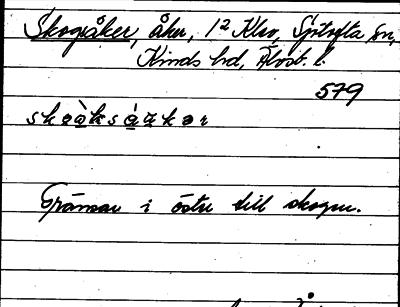 Skogsåker, åker, 1² Klev, Spitofta sn,
Kinds hd, Älvsb. l.
579
skɷ̀ksàkər
Gränsar i öster till skogen.